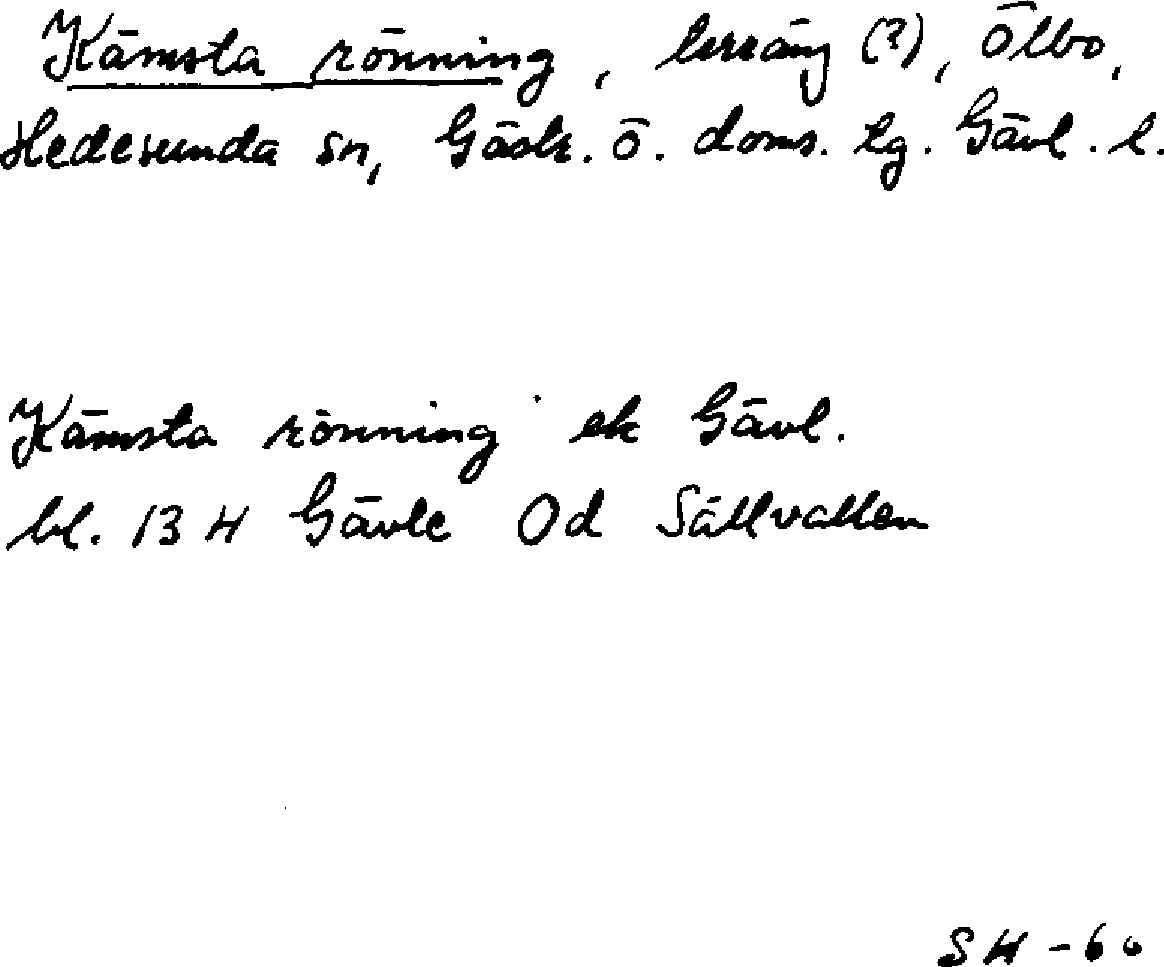 Kämsta rönning, terräng (?), Ölbo,
Hedesunda sn, Gästr. ö. doms. tg. Gävl. l.
Kämsta rönning ek Gävl.
bl. 13 H Gävle 0d Sällvallen
SH -60